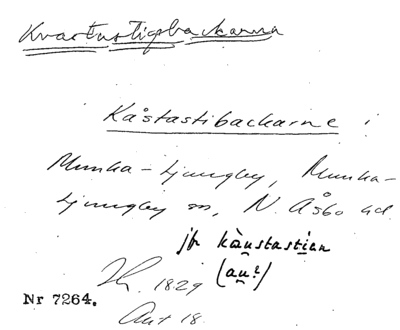 Kvarnstigsbackarna
Kåstastibackarne :
Munka-Ljungby, Munka-
Ljungby sn, N. Åsbo hd.
jfr kàu̯stasti̱an
(au̯?)
1829
Nr 7264.
Akt 18.